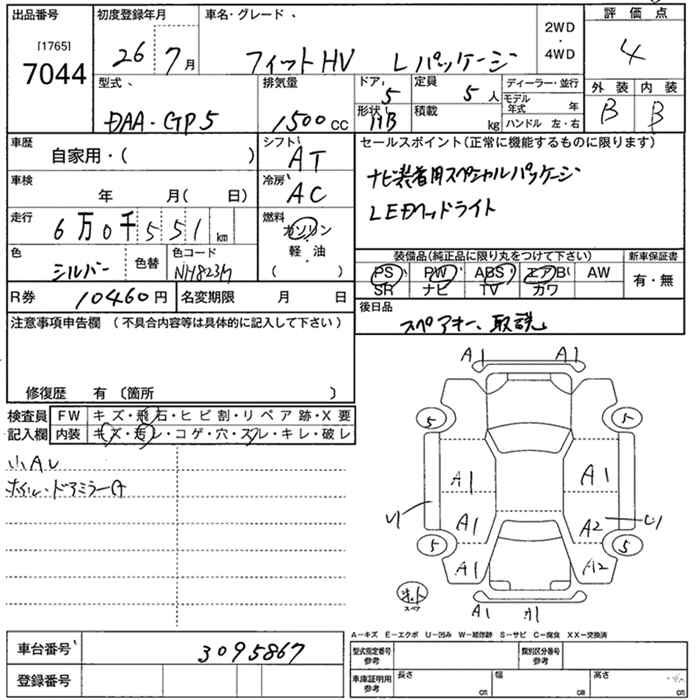 出品番号 初度登録年月 車名・グレード 評価点
[1765]
7044
26 7月 フィットHV Lパッケージ
2WD
・
4WD
4
型式 排気量 ドア 定員 ディーラー・並行 外装 内装
DAA・GP5 1500cc 5 5人
モデル年式 年
B B
形状 積載
HB kg ハンドル 左・右
車歴 シフト セールスポイント(正常に機能するものに限ります)
自家用・( ) AT
ナビ装着用スペシャルパッケージ
車検 冷房
年 月( 日) AC
LEDヘッドライト
走行 燃料
6万0千551km ガソリン
軽・油
( )
色 色替 色コード
シルバー NH823M
装備品(純正品に限り丸をつけて下さい) 新車保証書
PS PW ABS エアB AW 有・無
SR ナビ TV カワ
R券 10460円 名変期限 月 日
後日品
スペアキー、取説
注意事項申告欄 (不具合内容等は具体的に記入して下さい)
修復歴 有 〔箇所 〕
検査員 FW キズ・飛石・ヒビ割・リペア跡・X要
記入欄 内装 キズ・汚レ・コゲ・穴・スレ・キレ・破レ
小AU
ホイル・ドアミラーA
A1 A1
5 5
A1 A1
U1 A1 A2 U1
5 5
A1 A2
スペア
A1 A1
A−キズ E−エクボ U−凹み W−補修跡 S−サビ C−腐食 XX−交換済
車台番号 3095867
型式指定番号 類別区分番号
参考 参考
登録番号
車庫証明用 長さ 幅 高さ
参考 cm cm cm